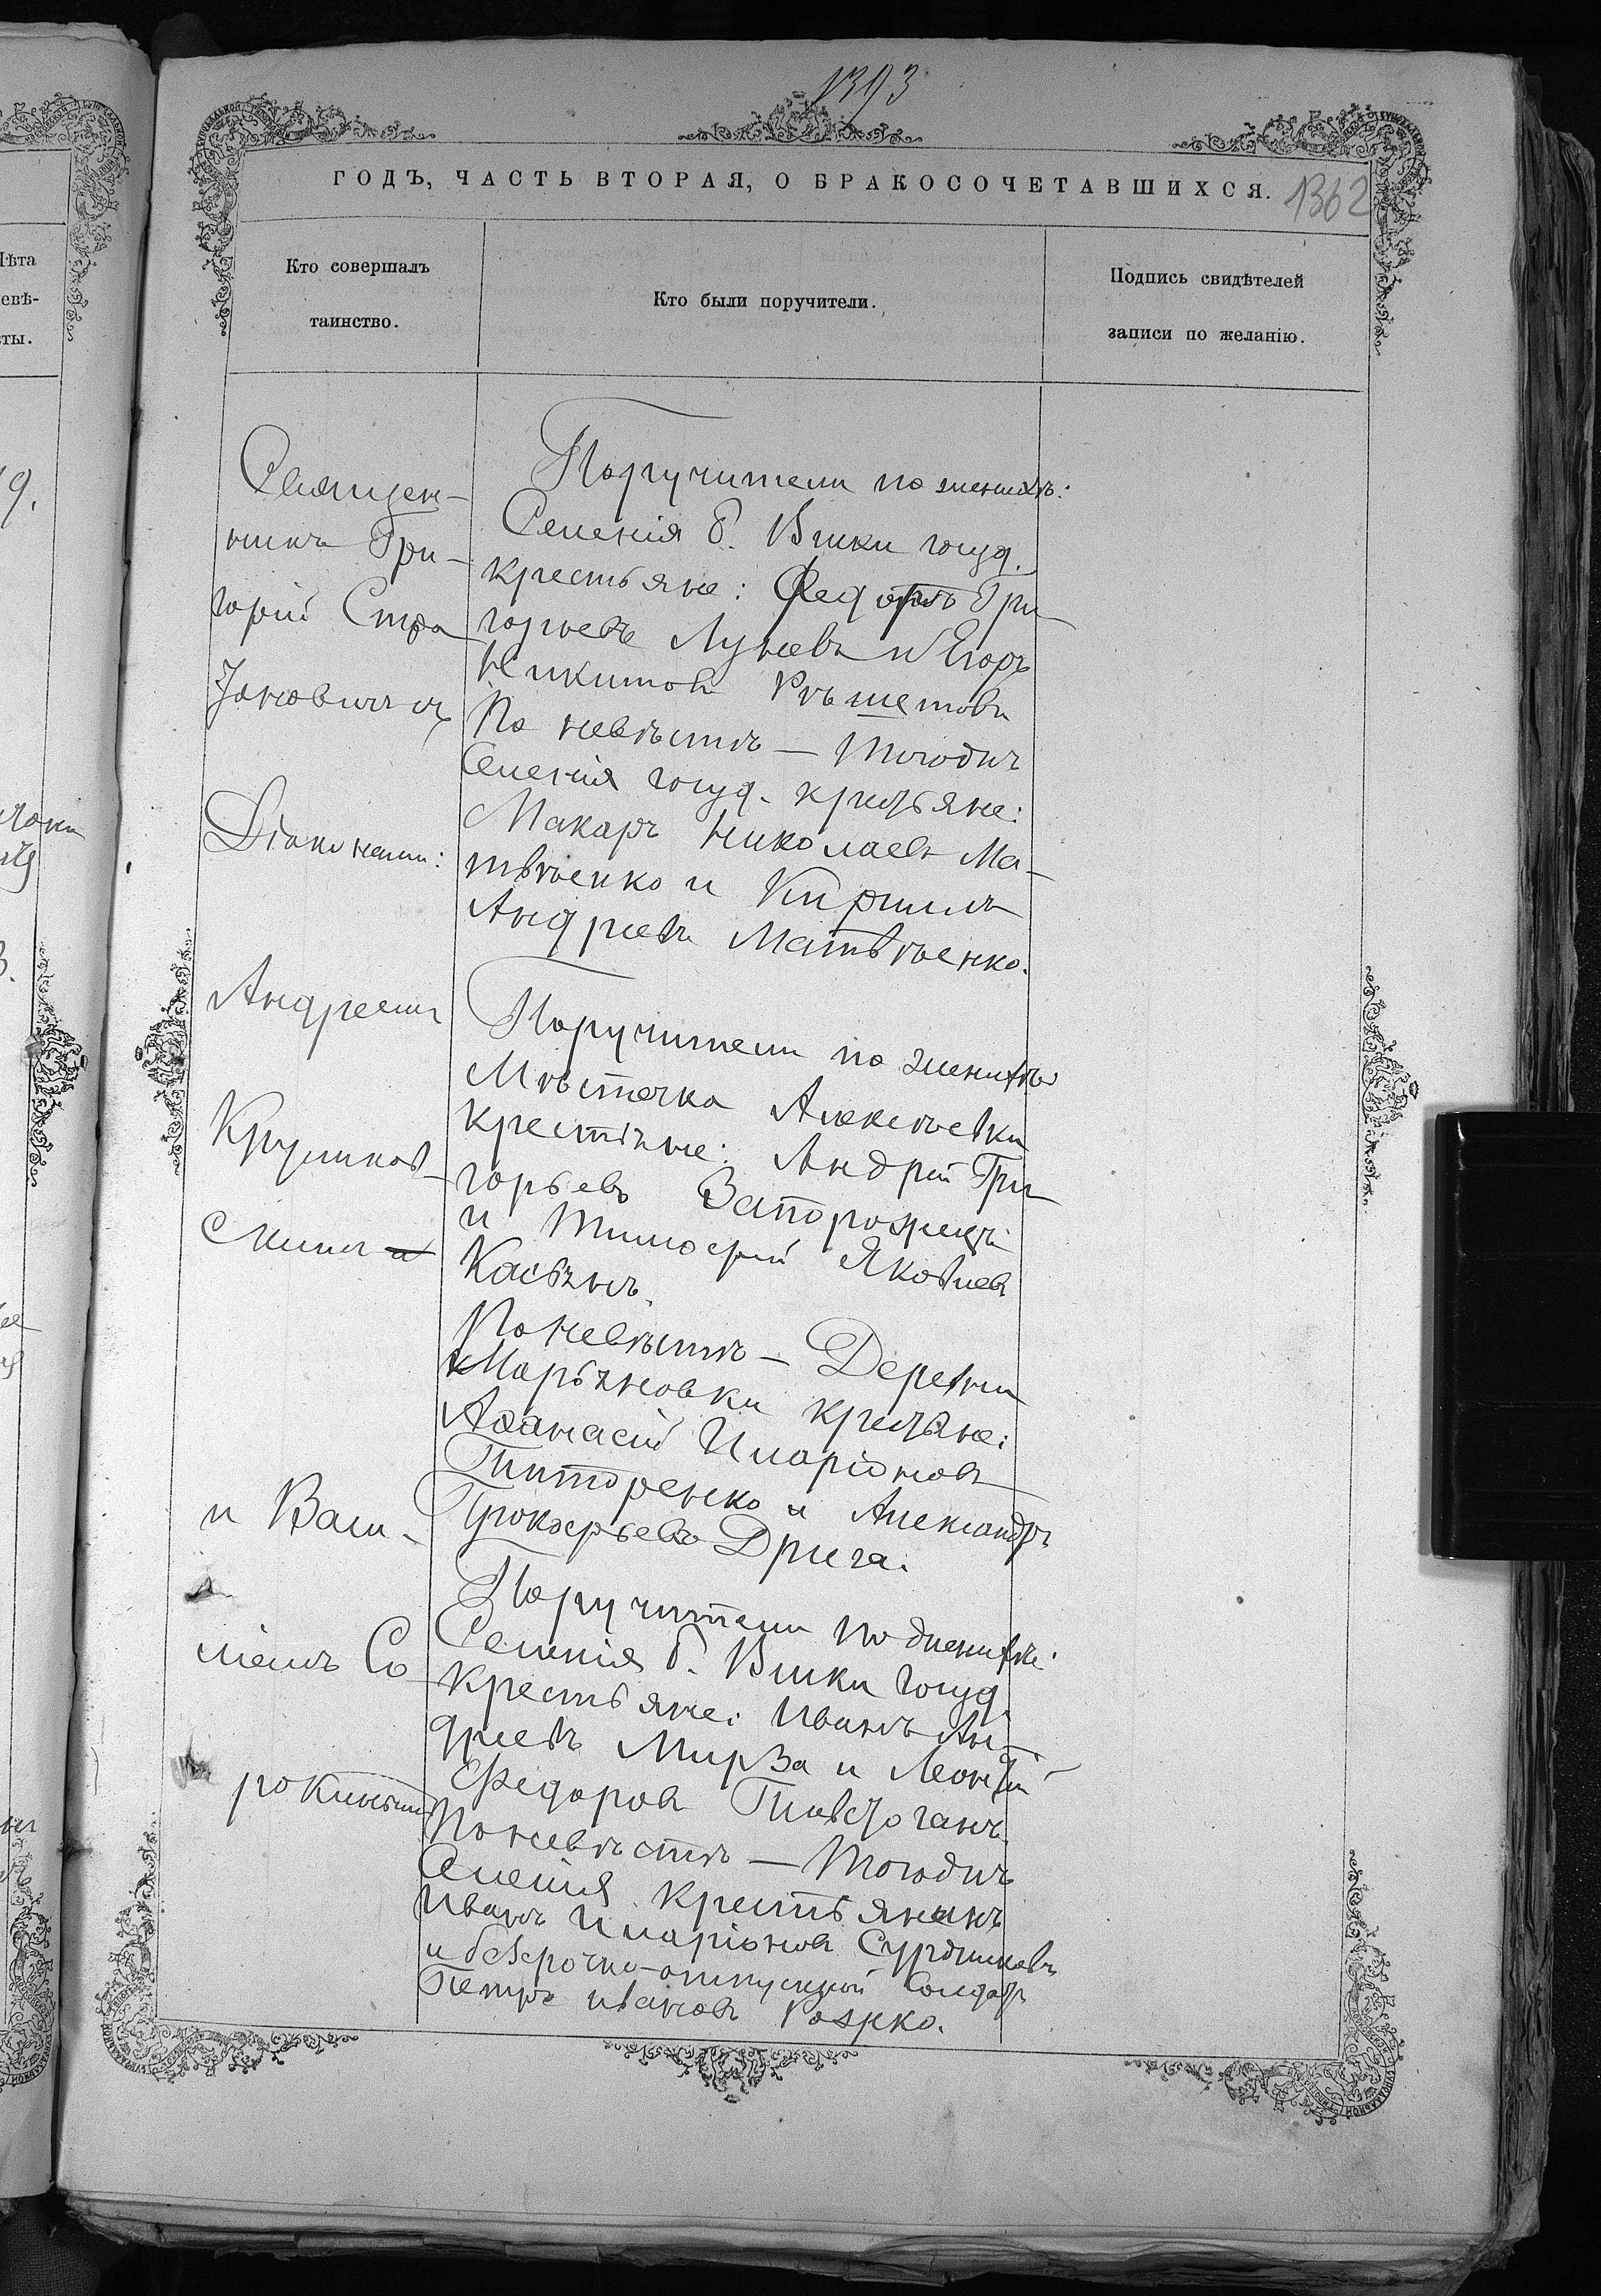 1393
ГОДЪ, ЧАСТЬ ВТОРАЯ, О БРАКОСОЧЕТАВШИХСЯ.
1362
Лѣта
невѣ-
сты.
Кто совершалъ
таинство.
Кто были поручители.
Подпись свидѣтелей
записи по желанію.
Священ-
никъ Гри-
горій Стоя
новичъ съ
Діаконами:
Андреемъ
Крушинов-
скимъ
и Васи-
ліемъ Со
рокинымъ
Поручители по женихѣ:
Селенія б. Виски госуд.
крестьяне: Федоръ Гри-
горьевъ Луневъ и Егоръ
Никитовъ Рѣшетовъ
По невѣстѣ — Тогодиж
Селенія госуд. крестьяне:
Макаръ Николаевъ Ма-
твѣенко и Кирилъ
Андреевъ Матвѣенко.
Поручители по женихѣ
Мѣстечка Алексѣевки
крестьяне: Андрей Гри-
горьевъ Запорожецъ
и Тимофей Яковлев
Касьянъ.
По невѣстѣ — Деревни
Марьяновки крестьяне:
Аѳанасій Иларіоновъ
Титоренко и Александръ
Прокофьевъ Дрига.
Поручители по женихѣ:
Селенія б. Виски госуд.
крестьяне: Иванъ Ан-
дреевъ Мирза и Леонтій
Федоровъ
По невѣстѣ — Тогодиж
Селенія крестьянинъ
Иванъ Иларіоновъ
и безсрочно-отпускной Солдатъ
Петръ Ивановъ Рожко.